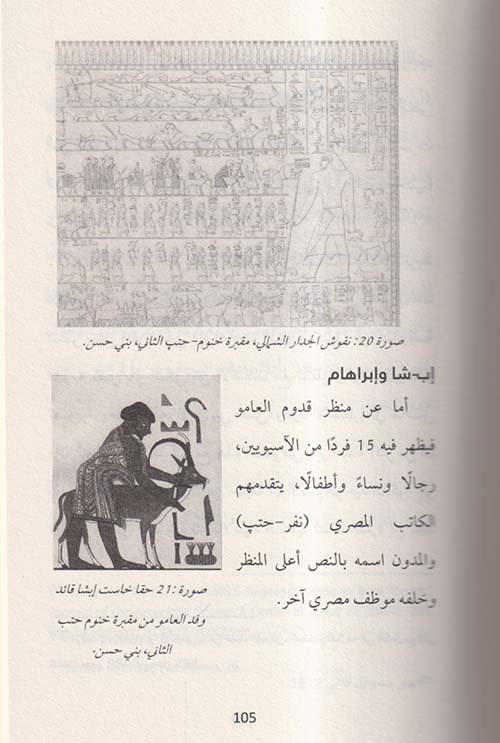 صورة 20: نقوش الجدار الشمالي، مقبرة خنوم-حتب الثاني، بني حسن.
إب-شا وإبراهام
أما عن منظر قدوم العامو
فيظهر فيه 15 فردًا من الآسيويين،
رجالًا ونساءً وأطفالًا، يتقدمهم
الكاتب المصري (نفر-حتپ)
والمدون اسمه بالنص أعلى المنظر
وخلفه موظف مصري آخر.
صورة :21 حقا خاست إبشا قائد
وفد العامو من مقبرة خنوم حتب
الثاني، بني حسن.
105